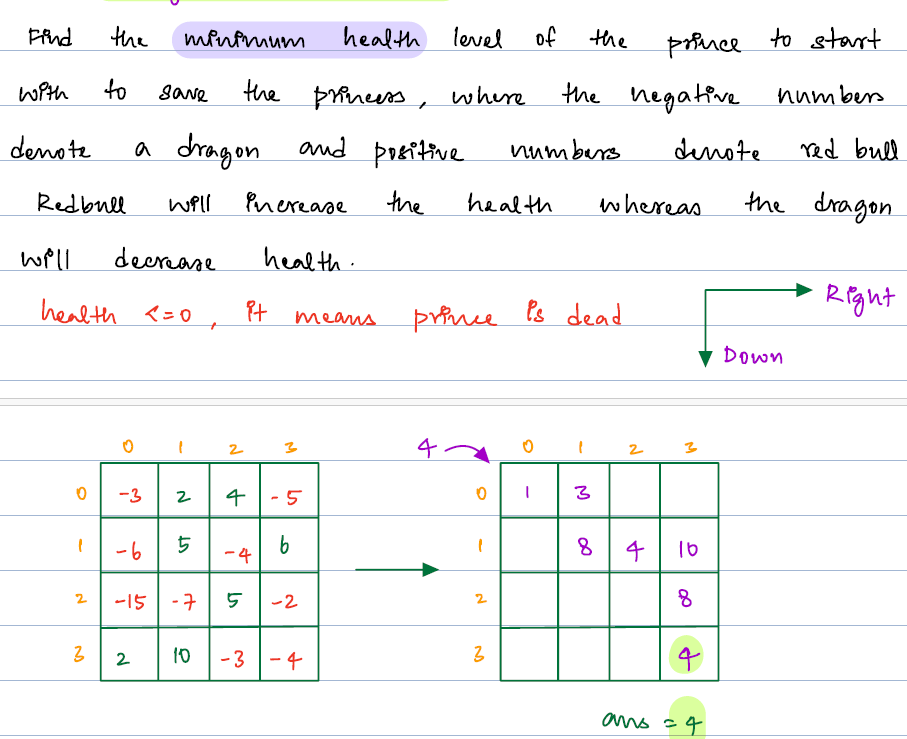 Find the minimum health level of the prince to start
with to save the princess, where the negative numbers
denote a dragon and positive numbers denote red bull
Redbull will increase the health whereas the dragon
will decrease health.
health <=0, it means prince is dead
Right
Down
0 1 2 3
4 0 1 2 3
0 -3 2 4 -5
0 1 3
1 -6 5 -4 6
1 8 4 10
2 -15 -7 5 -2
2 8
3 2 10 -3 -4
3 4
ans = 4